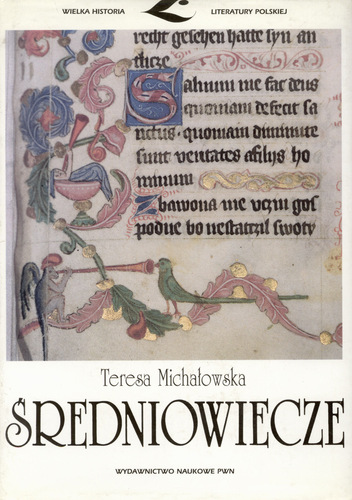 WIELKA HISTORIA LITERATURY POLSKIEJ
recht gesehen hatte syn an
tlicze
Saluum me fac deus
quoniam defecit sa
nctus · quoniam diminute
sunt veritates afilys ho
minum
Zbawona me vczyn gos
podne bo nestatczil swoty
Teresa Michałowska
ŚREDNIOWIECZE
WYDAWNICTWO NAUKOWE PWN